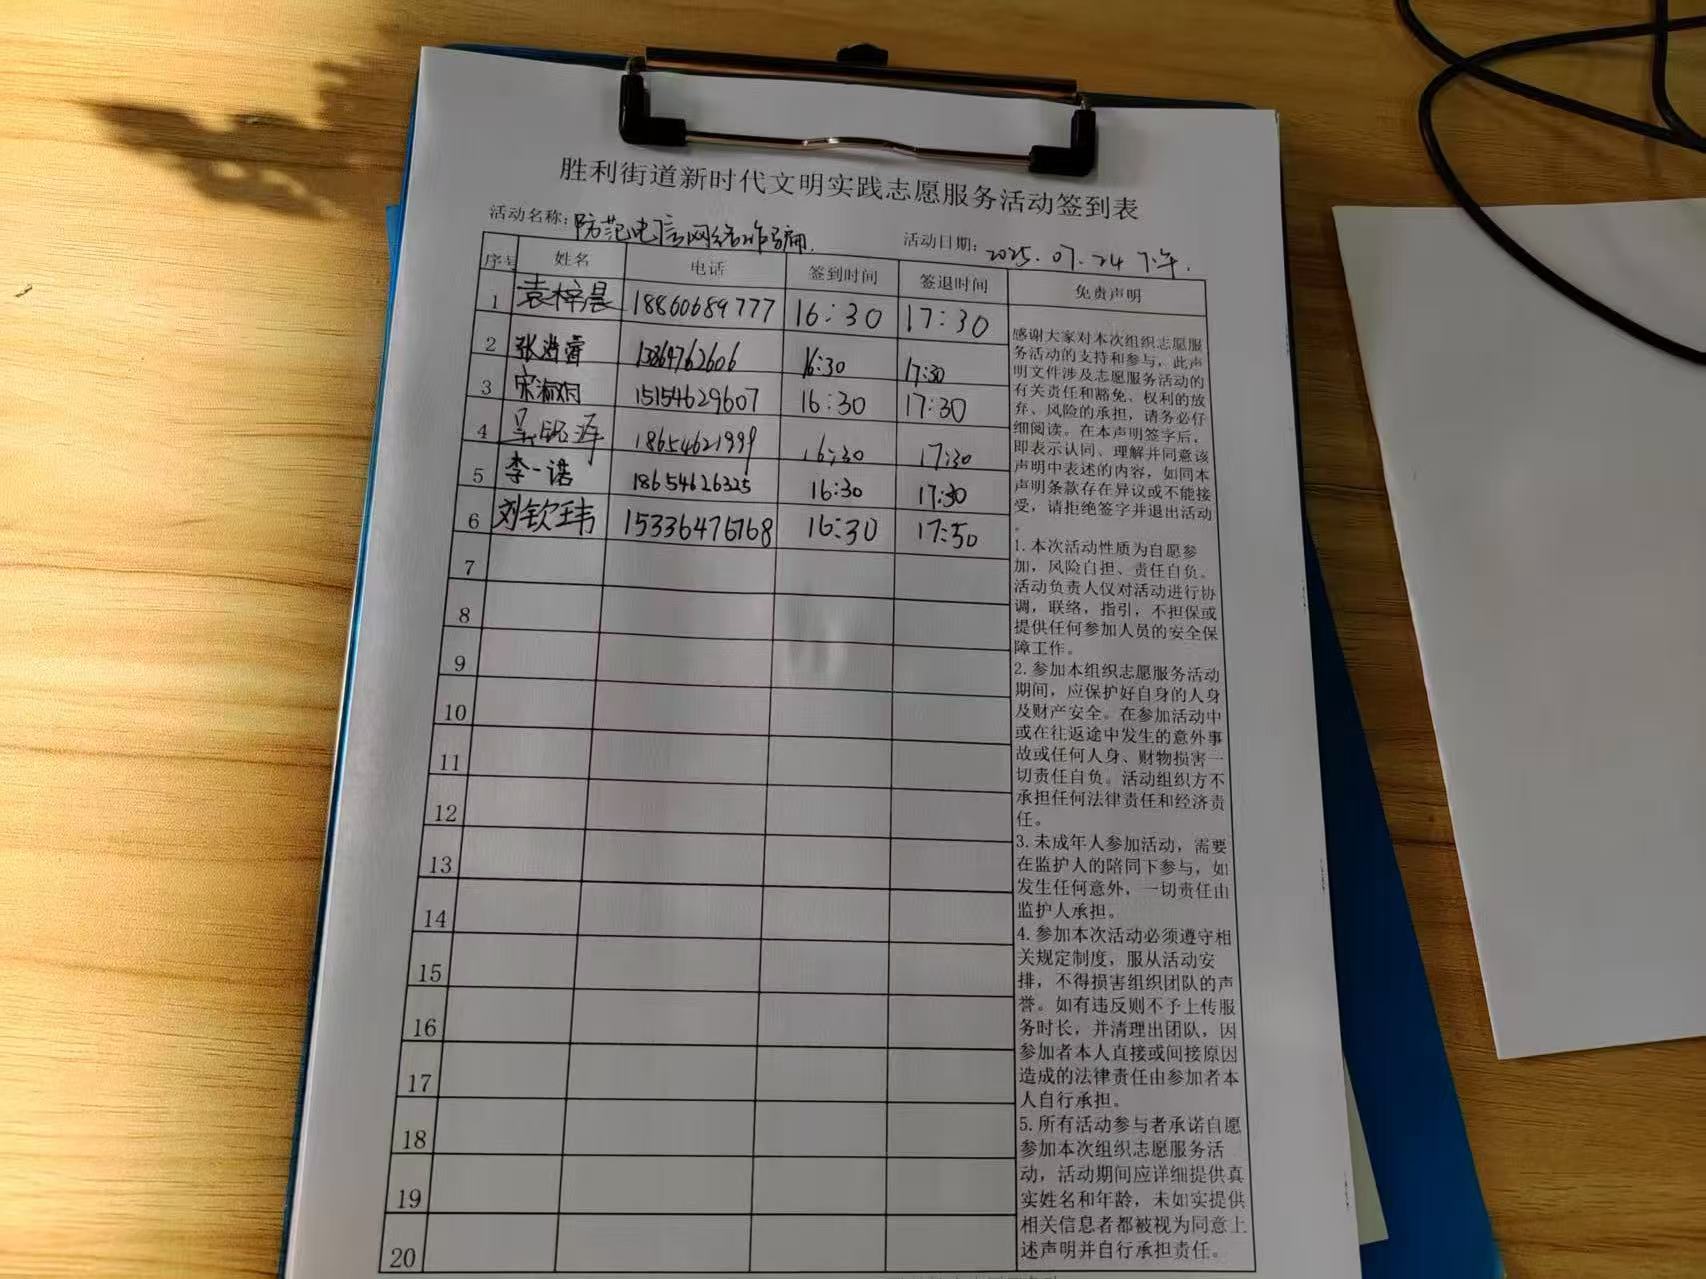 胜利街道新时代文明实践志愿服务活动签到表
活动名称：防范电信网络诈骗 活动日期：2025.07.24 下午.
序号 姓名 电话 签到时间 签退时间 免责声明
1 袁梓晨 18860689777 16:30 17:30
2 张 睿 13864762606 16:30 17:30
3 宋淑娴 15154629607 16:30 17:30
4 吴铭泽 18654621999 16:30 17:30
5 李一诺 18654626325 16:30 17:30
6 刘钦玮 15336476768 16:30 17:50
7
8
9
10
11
12
13
14
15
16
17
18
19
20
感谢大家对本次组织志愿服
务活动的支持和参与，此声
明文件涉及志愿服务活动的
有关责任和豁免、权利的放
弃、风险的承担，请务必仔
细阅读。在本声明签字后，
即表示认同、理解并同意该
声明中表述的内容，如同本
声明条款存在异议或不能接
受，请拒绝签字并退出活动
。
1.本次活动性质为自愿参
加，风险自担、责任自负。
活动负责人仅对活动进行协
调，联络，指引，不担保或
提供任何参加人员的安全保
障工作。
2.参加本组织志愿服务活动
期间，应保护好自身的人身
及财产安全。在参加活动中
或在往返途中发生的意外事
故或任何人身、财物损害一
切责任自负。活动组织方不
承担任何法律责任和经济责
任。
3.未成年人参加活动，需要
在监护人的陪同下参与，如
发生任何意外，一切责任由
监护人承担。
4.参加本次活动必须遵守相
关规定制度，服从活动安
排，不得损害组织团队的声
誉。如有违反则不予上传服
务时长，并清理出团队，因
参加者本人直接或间接原因
造成的法律责任由参加者本
人自行承担。
5.所有活动参与者承诺自愿
参加本次组织志愿服务活
动，活动期间应详细提供真
实姓名和年龄，未如实提供
相关信息者都被视为同意上
述声明并自行承担责任。